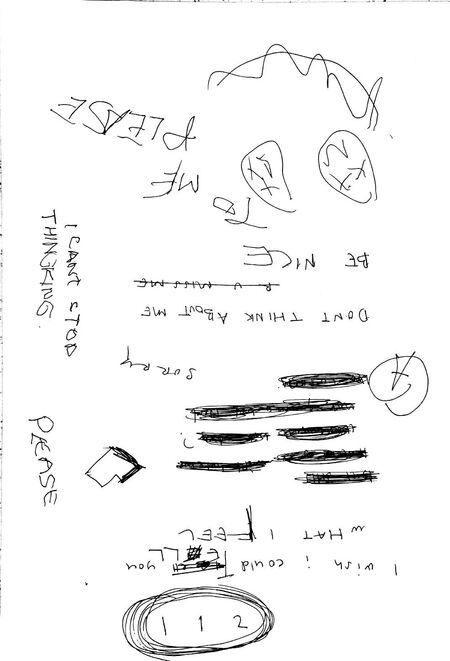 1 1 2
I wish i could TELL you
WHAT I FEEL
SORRY
DONT THINK ABOUT ME
R U MISS ME
BE NICE
TO
ME
PLEASE
I CANT STOP
THINGKING.
PLEASE